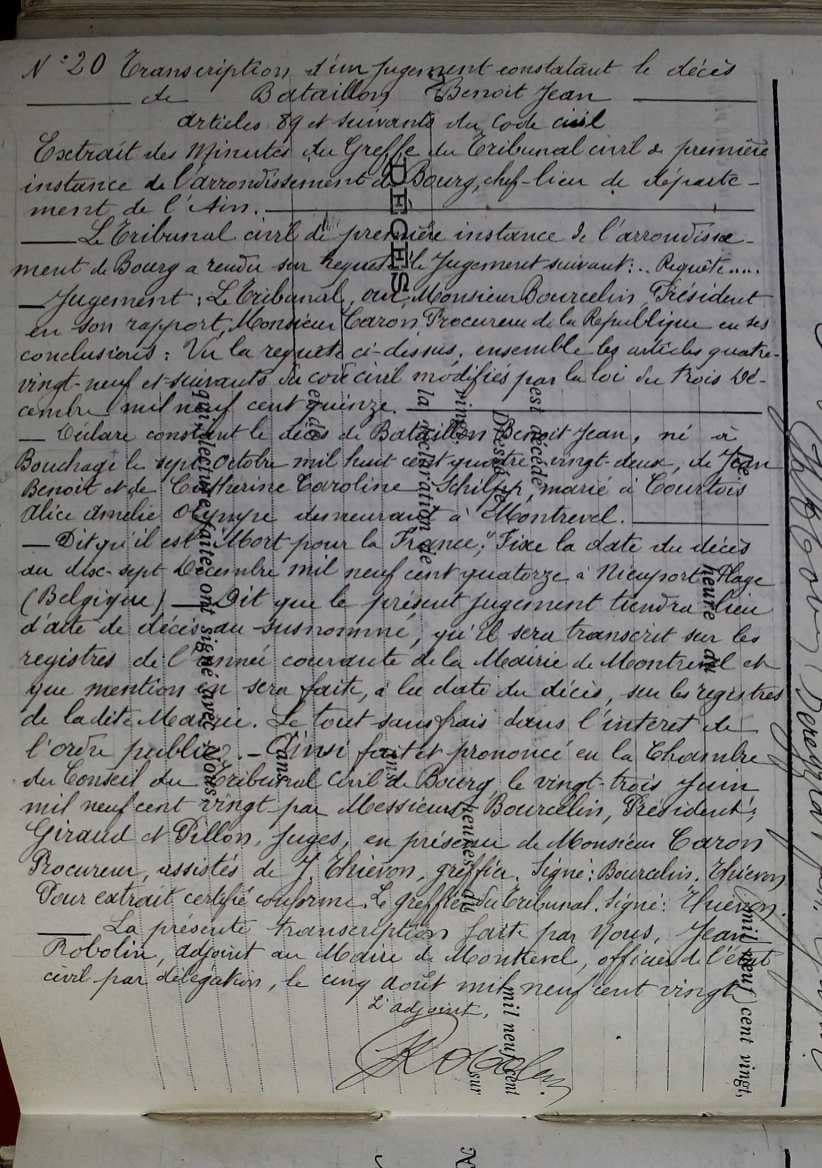 N° 20 Transcription d'un Jugement constatant le décès
de Bataillon Benoit Jean
articles 89 et suivants du Code civil
Extrait des Minutes du Greffe du Tribunal civil de première
instance de l'arrondissement de Bourg, chef-lieu de départe-
ment de l'Ain.
Le Tribunal civil de première instance de l'arrondisse-
ment de Bourg a rendu sur requête le Jugement suivant: .. Requête.....
Jugement: Le Tribunal, ouï, Monsieur Bourcelin, Président
en son rapport, Monsieur Caron Procureur de la République en ses
conclusions: Vu la requête ci-dessus, ensemble les articles quatre-
vingt-neuf et suivants du code civil modifiés par la loi du trois Dé-
cembre mil neuf cent quinze.
Déclare constant le décès de Bataillon Benoit Jean, né à
Bouchage le sept Octobre mil huit cent quatre-vingt-deux, de Jean
Benoit et de Catherine Caroline Schilpp, marié à Courtois
Alice Amélie Olympe demeurant à Montrevel.
Dit qu'il est "Mort pour la France," Fixe la date du décès
au dix-sept Décembre mil neuf cent quatorze à Nieuport-Plage
(Belgique) Dit que le présent jugement tiendra lieu
d'acte de décès au susnommé, qu'il sera transcrit sur les
registres de l'année courante de la Mairie de Montrevel et
que mention en sera faite, à la date du décès, sur les registres
de la dite Mairie. Le tout sans frais dans l'interet de
l'ordre public. - Ainsi fait et prononcé en la Chambre
du Conseil du Tribunal Civil de Bourg, le vingt-trois Juin
mil neuf cent vingt par Messieurs Bourcelin, Président,
Giraud et Pillon, Juges, en présence de Monsieur Caron
Procureur, assistés de J. Thiévon, greffier. Signé: Bourcelin. Thiévon
Pour extrait certifié conforme. Le greffier du Tribunal. Signé: Thiévon.
La présente transcription faite par Nous, Jean
Robolin, adjoint au Maire de Montrevel, officier de l'état
civil par délégation, le cinq août mil neuf cent vingt
L'adjoint,
Robolin
DÉCÈS
Le
heure du
mil neuf cent vingt,
est décédé
Dressé le
mil neuf cent
vingt,
heures du
sur
la déclaration de
ans
et de
ans
qui, lecture faite ont signé avec Nous